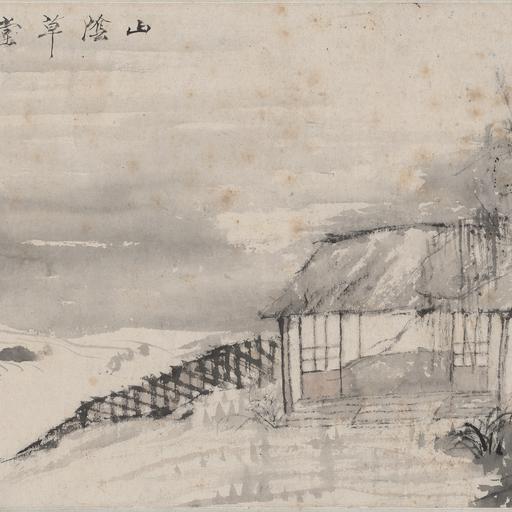 山陰草堂